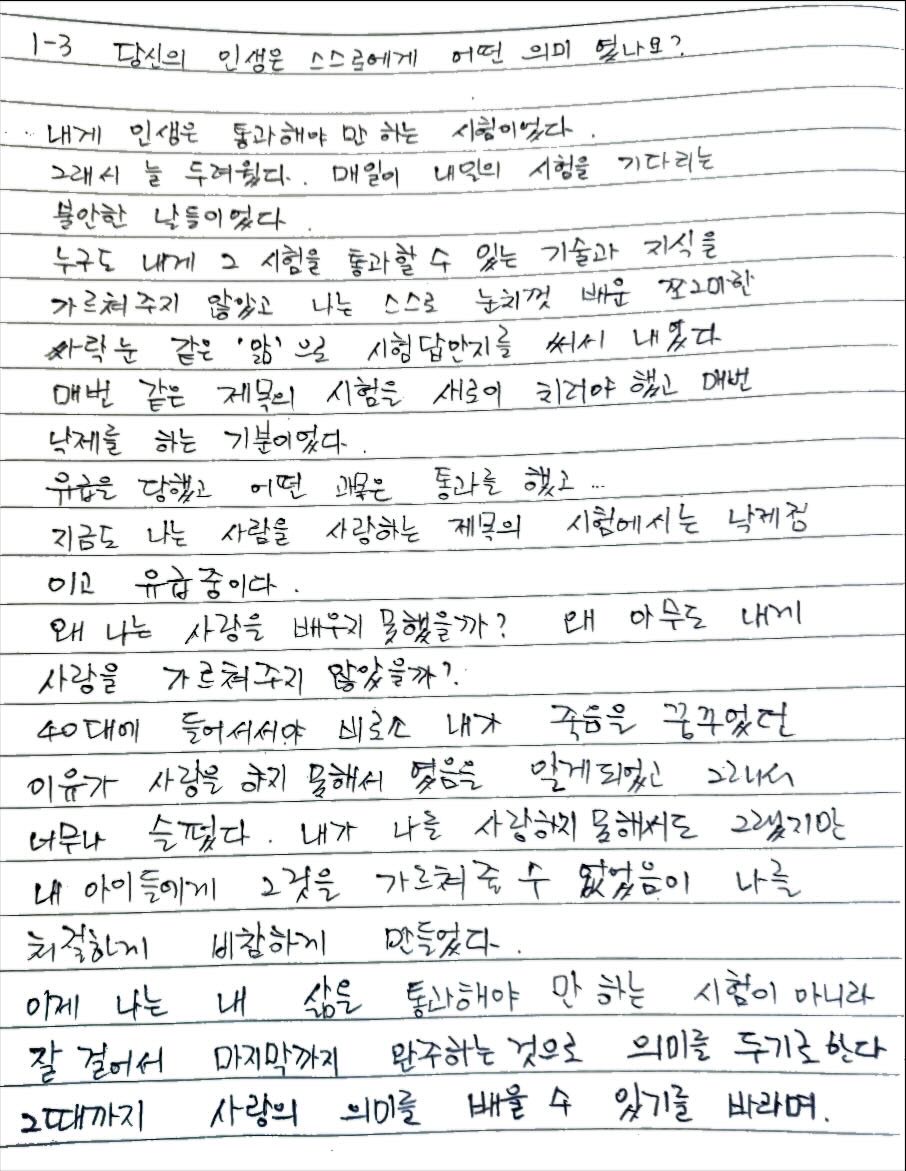 1-3 당신의 인생은 스스로에게 어떤 의미 였나요?
내게 인생은 통과해야 만 하는 시험이었다.
그래서 늘 두려웠다. 매일이 내일의 시험을 기다리는
불안한 날들이었다.
누구도 내게 그 시험을 통과할 수 있는 기술과 지식을
가르쳐주지 않았고 나는 스스로 눈치껏 배운 쪼그마한
싸락눈 같은 '앎'으로 시험답안지를 써서 내었다
매번 같은 제목의 시험을 새로이 치러야 했고 매번
낙제를 하는 기분이었다.
유급을 당했고 어떤 과목은 통과를 했고...
지금도 나는 사람을 사랑하는 제목의 시험에서는 낙제점
이고 유급중이다.
왜 나는 사랑을 배우지 못했을까? 왜 아무도 내게
사랑을 가르쳐주지 않았을까?
40대에 들어서서야 비로소 내가 죽음을 꿈꾸었던
이유가 사랑을 하지 못해서 였음을 알게되었고 그래서
너무나 슬펐다. 내가 나를 사랑하지 못해서도 그랬지만
내 아이들에게 그것을 가르쳐 줄 수 없었음이 나를
처절하게 비참하게 만들었다.
이제 나는 내 삶은 통과해야 만 하는 시험이 아니라
잘 걸어서 마지막까지 완주하는 것으로 의미를 두기로한다
그때까지 사랑의 의미를 배울 수 있기를 바라며.